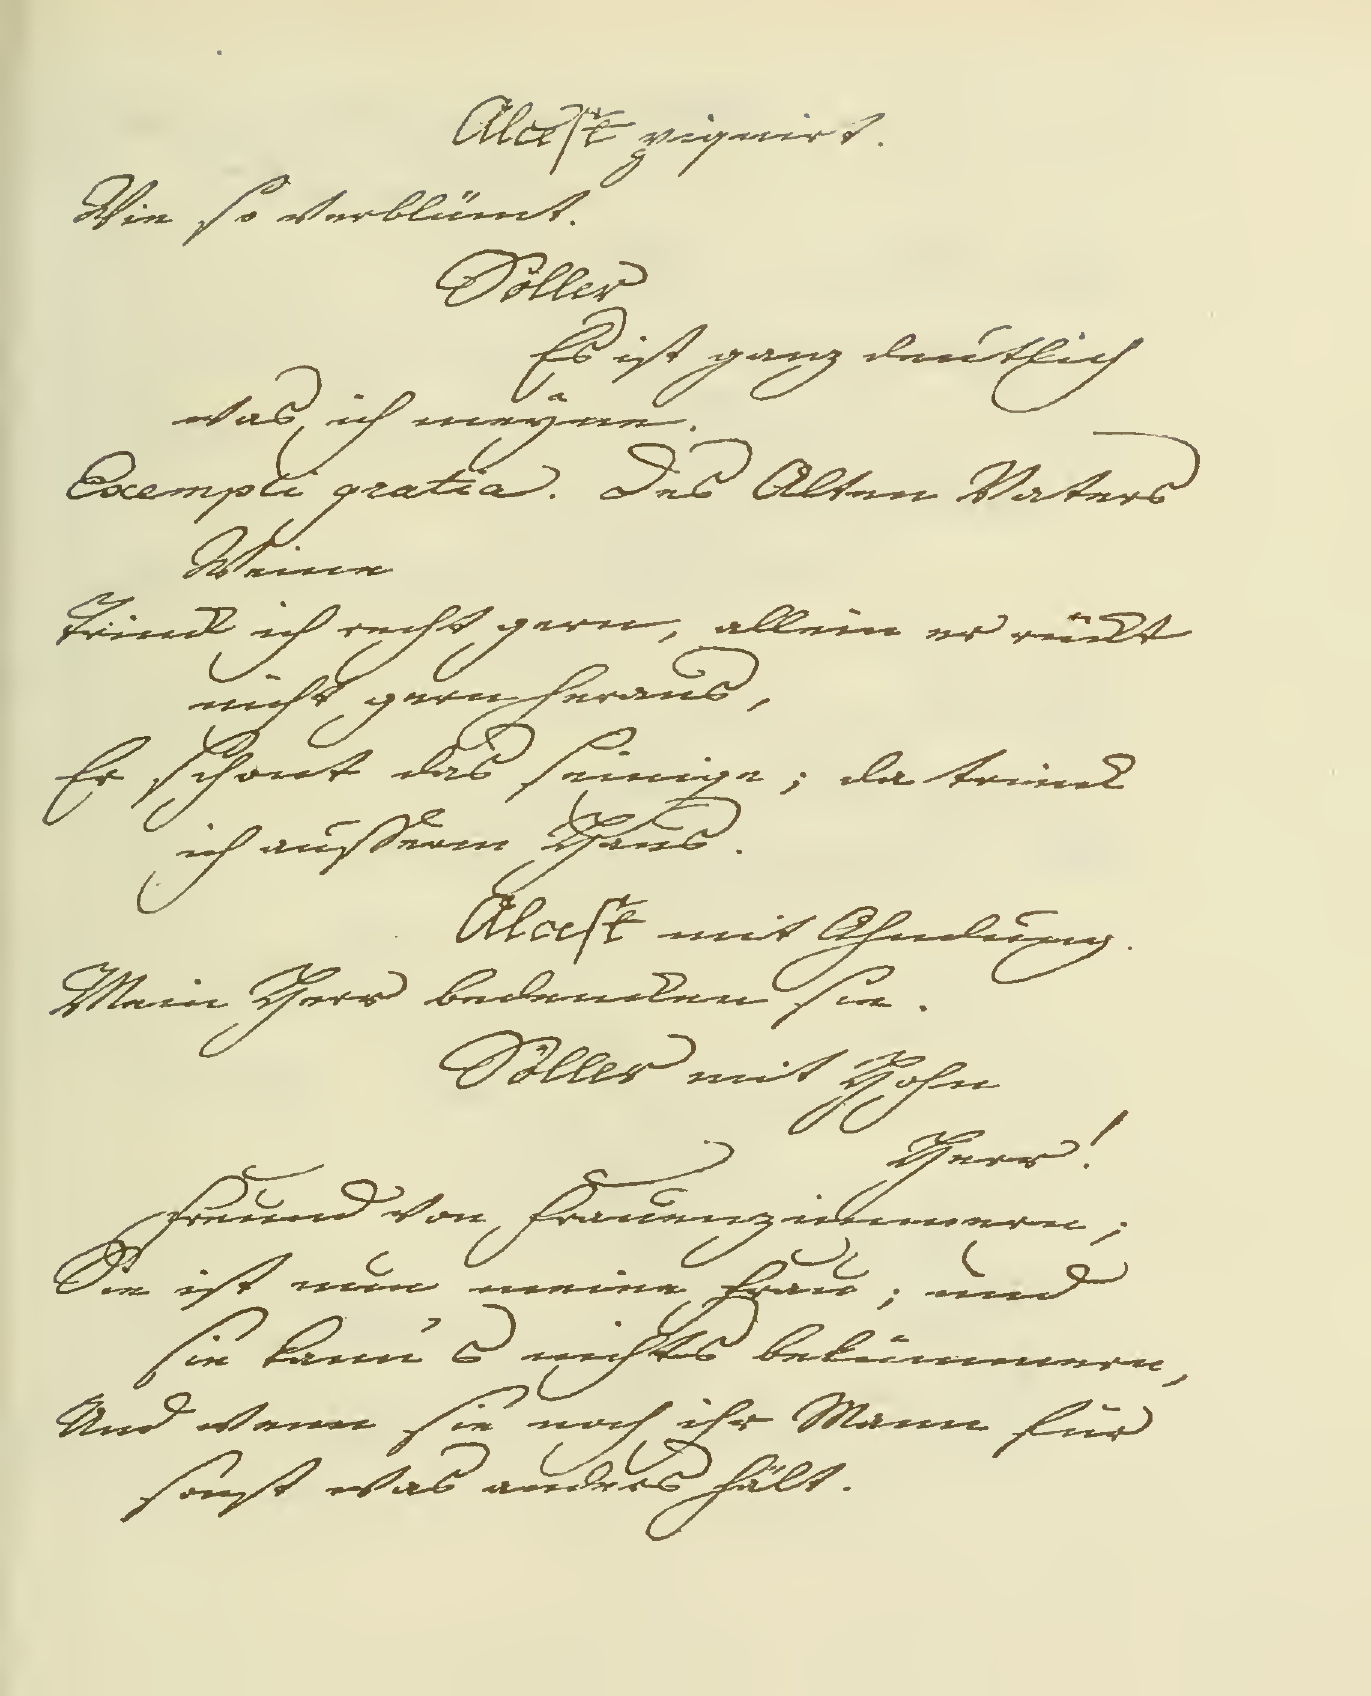 Alcest piquirt.
Wie so verblümt.
Söller
Es ist ganz deutlich
was ich meyne.
Exempli gratia. Des Alten Vaters
Weine
Trinck ich recht gern, allein er rückt
nicht gern heraus,
Er schont das seinige; da trinck
ich ausserm Haus.
Alcest mit Ahndung.
Mein Herr bedencken sie.
Söller mit Hohn
Herr!
Freund von Frauenzimmern;
Sie ist nun meine Frau; und
sie kann's nichts bekümmern,
Und wenn sie noch ihr Mann für
sonst was anders hält.